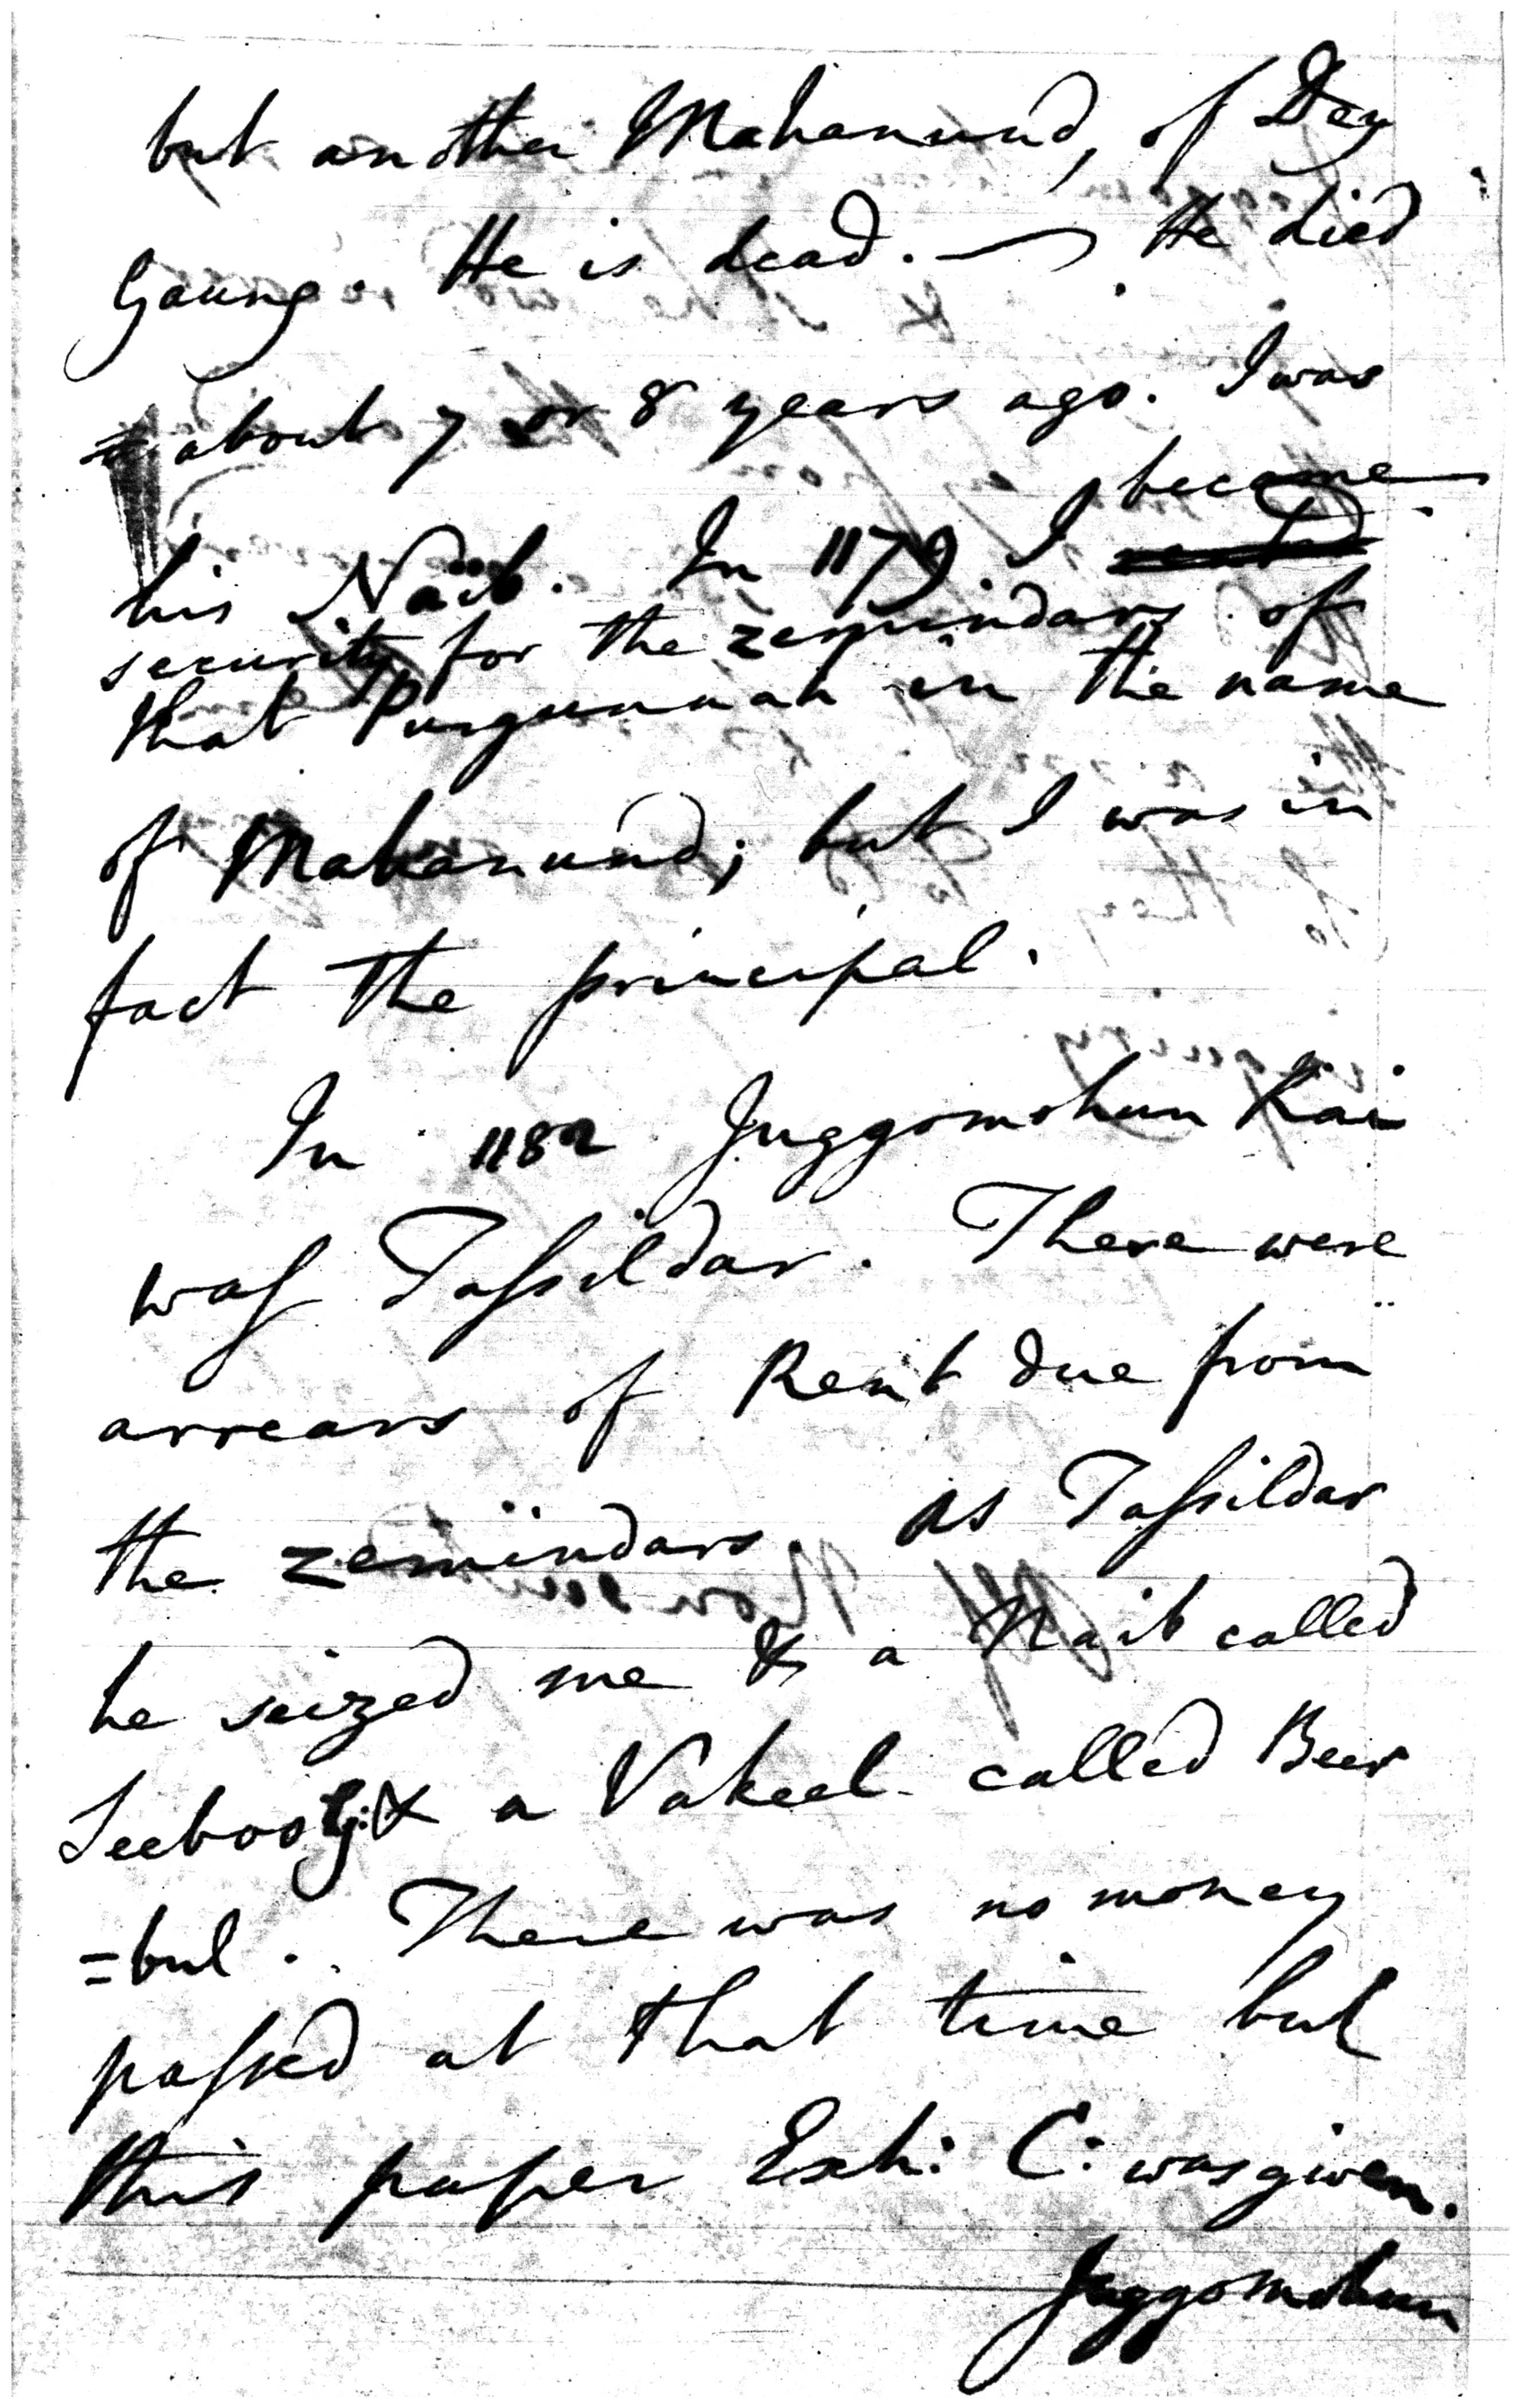 but another Mahanund, of Dey
Gaung. He is dead. — He died
about 7 or 8 years ago. I was
his Naib. In 1179 I became
security for the zemindars of
that Purgunnah in the name
of Mahanund; but I was in
fact the principal.
In 1182 Juggomohun Rai
was Tassildar. There were
arrears of Rent due from
the zemindars. As Tassildar
he seized me & a Naib called
Seeboo & a Vakeel called Beer
=bul. There was no money
passed at that time but
this paper Exh: C: was given.
Juggomohun